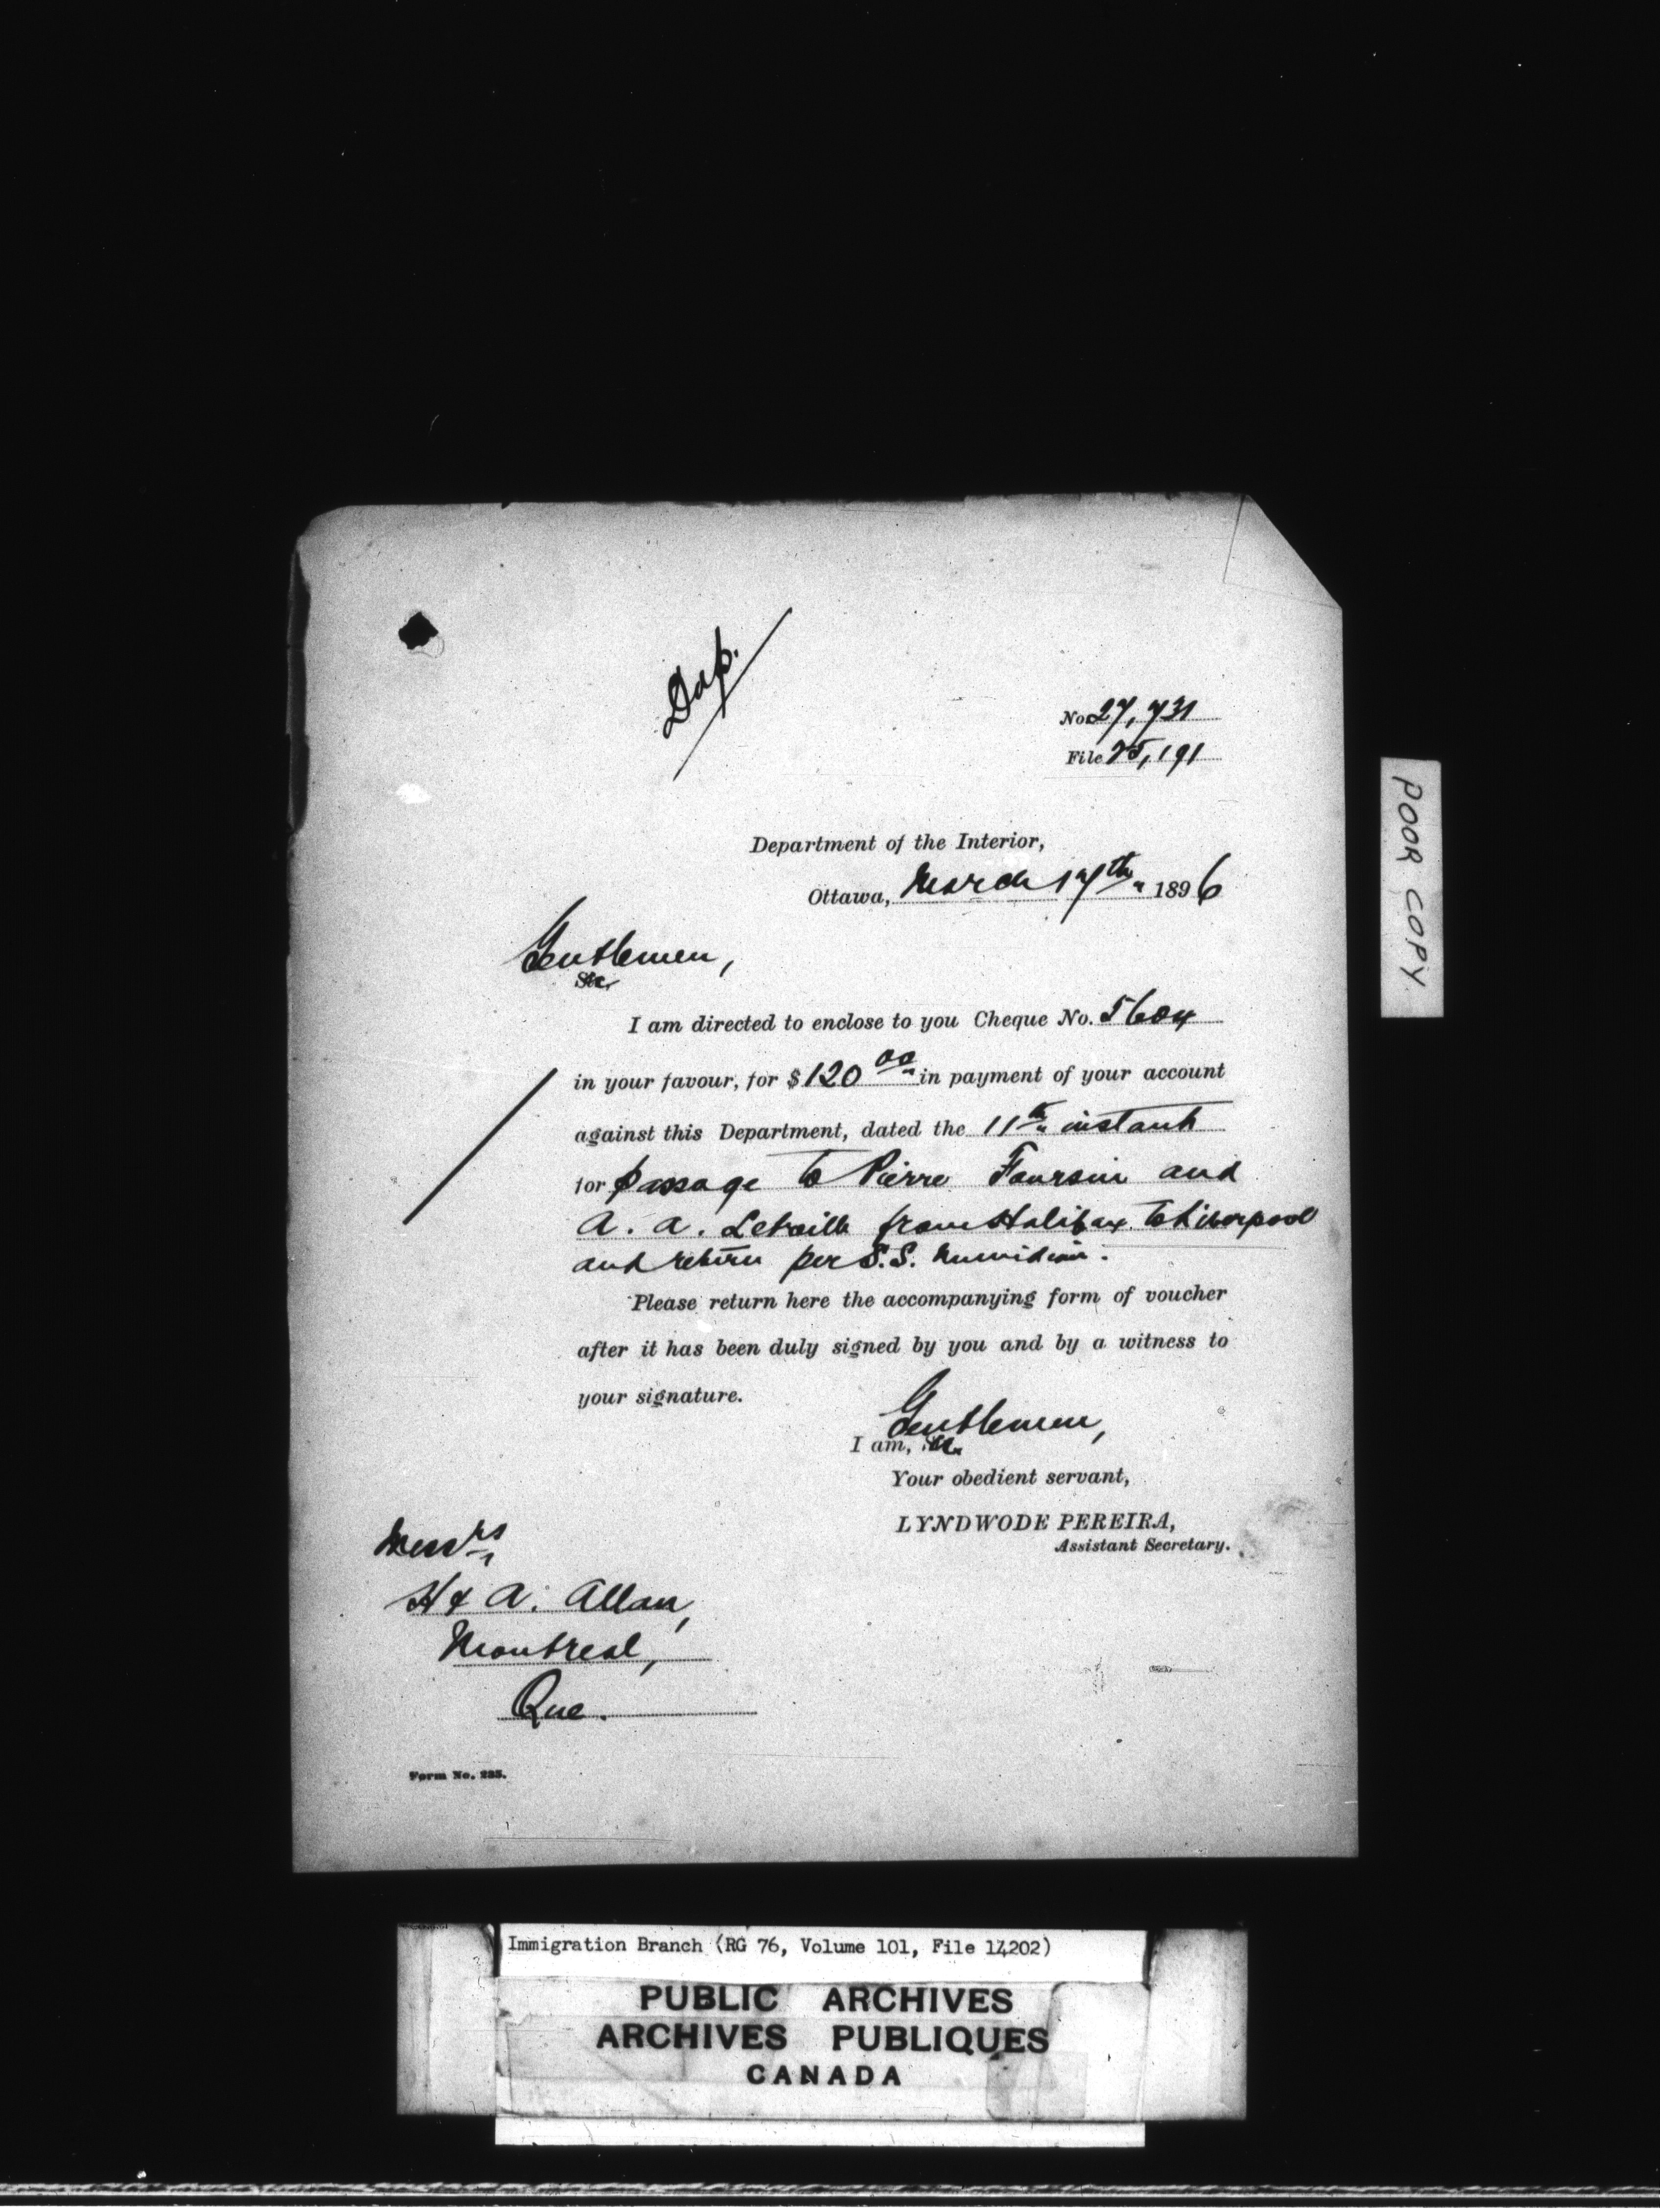 Dup.
No. 27,731
File 25,191
Department of the Interior,
Ottawa, March 17th 1896
Gentlemen,
Sir,
I am directed to enclose to you Cheque No. 5604
in your favour, for $120 00 in payment of your account
against this Department, dated the 11th instant
for passage to Pierre Foursin and
A. A. from Halifax to Liverpool
and return per S.S. Numidian.
Please return here the accompanying form of voucher
after it has been duly signed by you and by a witness to
your signature.
Gentlemen,
I am, Sir,
Your obedient servant,
LYNDWODE PEREIRA,
Assistant Secretary.
Messrs
H & A. Allan,
Montreal,
Que.
Form No. 235.
POOR COPY
Immigration Branch (RG 76, Volume 101, File 14202)
PUBLIC ARCHIVES
ARCHIVES PUBLIQUES
CANADA